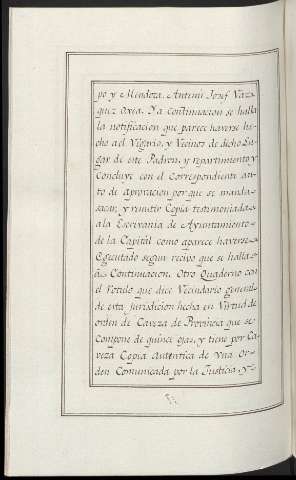 po y Mendoza. Antemi Josef Vaz=
quez Oxea. Ya continuacion se halla
la notificacion que parece haverse he-
cho a el Vigario, y Vecinos de dicho Lu-
gar de este Padron, y repartimiento y
Concluye con el Correspondiente au-
to de aprovacion por que se manda
sacar, y remitir Copia testimoniada
a la Escrivania de Ayuntamiento
de la Capital como aparece haverse
Egecutado segun recivo que se halla
a Continuacion. Otro Quaderno con
el Rotulo que dice Vecindario general
de esta jurisdicion hecha en Virtud de
orden de Caveza de Provincia que se
Compone de quince ojas, y tiene por Ca-
veza Copia Autentica de Una Or-
den Comunicada por la Justicia, y